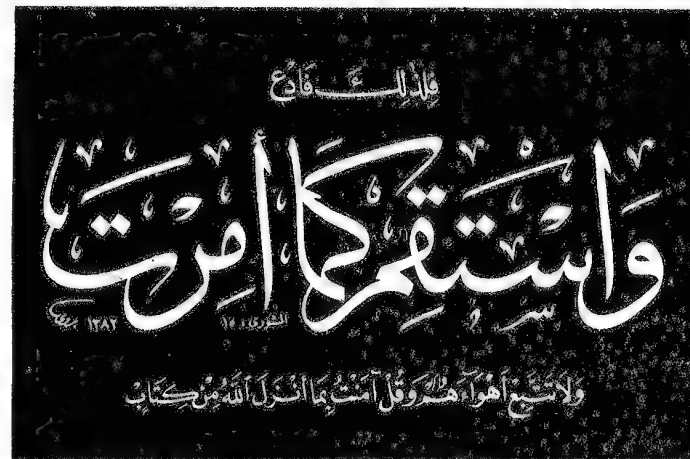 فَلِذَٰلِكَ فَادْعُ
وَاسْتَقِمْ كَمَا أُمِرْتَ
الشورى: ١٥
١٣٨٢
وَلَا تَتَّبِعْ أَهْوَاءَهُمْ وَقُلْ آمَنْتُ بِمَا أَنْزَلَ اللهُ مِنْ كِتَابٍ